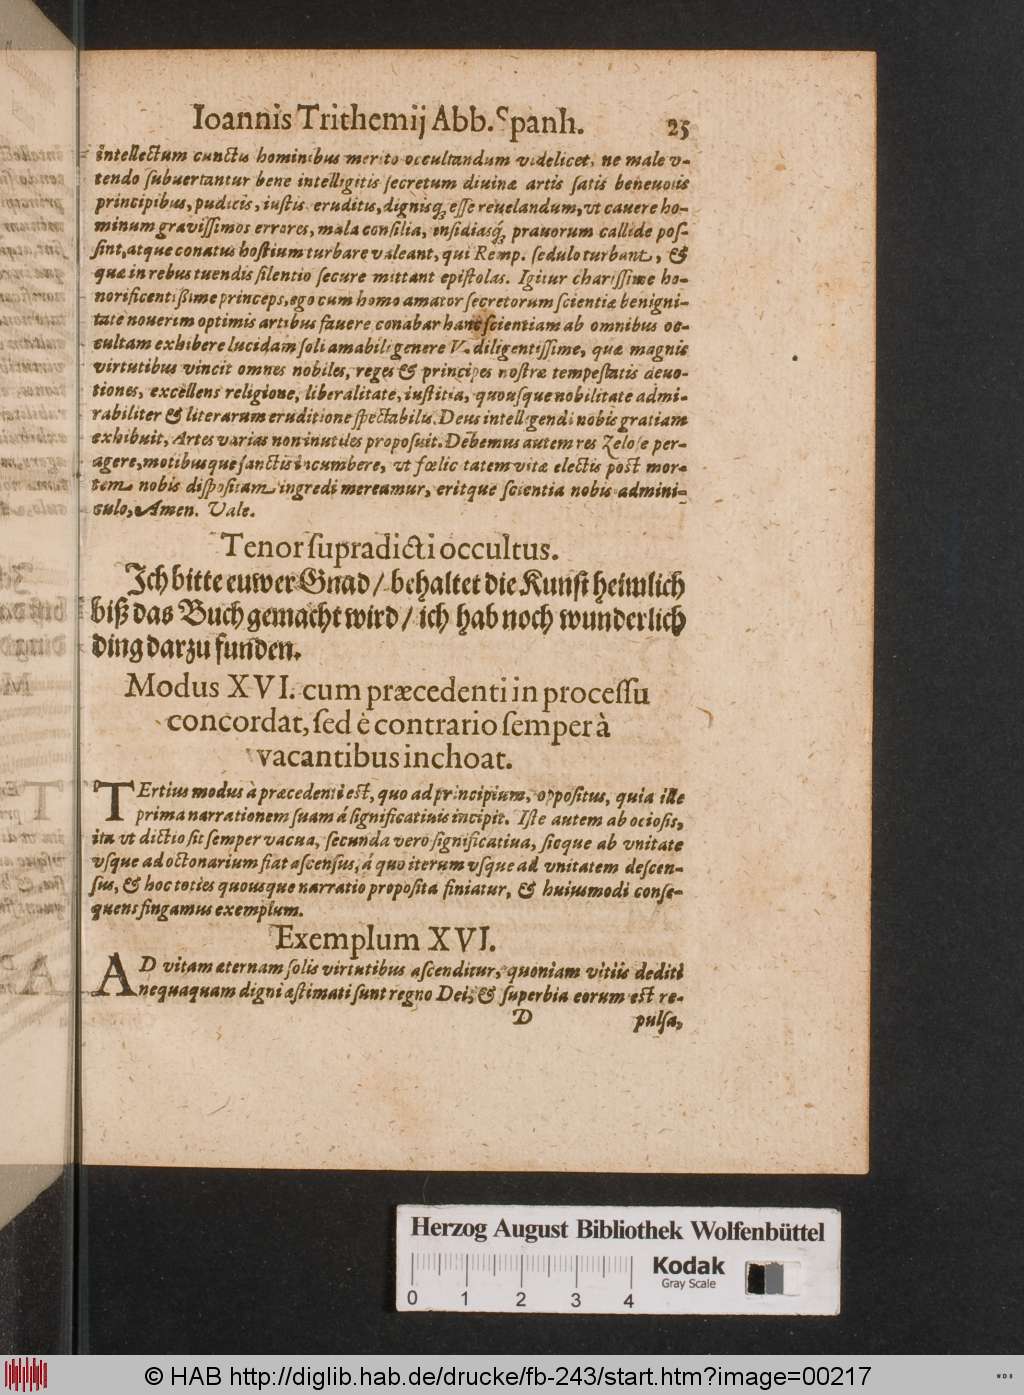 Ioannis Trithemij Abb. Spanh. 25
intellectum cunctis hominibus merito occultandum videlicet, ne male v-
tendo ſubuertantur bene intelligitis ſecretum diuinæ artis ſatis beneuolis
principibus, pudicis, iuſtis eruditis, dignisq; eſſe reuelandum, vt cauere ho-
minum grauiſſimos errores, mala conſilia, inſidiasq́; prauorum callide poſ-
ſint, atque conatus hoſtium turbare valeant, qui Remp. ſedulo turbant, &
quæ in rebus tuendis ſilentio ſecure mittant epiſtolas. Igitur chariſſime ho-
norificentißime princeps, ego cum homo amator ſecretorum ſcientiæ benigni-
tate nouerim optimis artibus fauere conabar hanc ſcientiam ab omnibus oc-
cultam exhibere lucidam ſoli amabili genere V. diligentiſſime, quæ magnis
virtutibus vincit omnes nobiles, reges & principes noſtræ tempeſtatis deuo-
tiones, excellens religione, liberalitate, iuſtitia, quouſque nobilitate admi-
rabiliter & literarum eruditione ſpectabilis. Deus intelligendi nobis gratiam
exhibuit, Artes varias non inutiles propoſuit. Debemus autem res Zeloſe per-
agere, motibusque ſanctis incumbere, vt fœlicitatem vitæ electis poſt mor-
tem nobis diſpoſitam ingredi mereamur, eritque ſcientia nobis admini-
culo, Amen. Vale.
Tenor ſupradicti occultus.
Ich bitte euwer Gnad / behaltet die Kunſt heimlich
biß das Buch gemacht wird / ich hab noch wunderlich
ding darzu funden.
Modus XVI. cum præcedenti in proceſſu
concordat, ſed è contrario ſemper à
vacantibus inchoat.
TErtius modus à præcedenti eſt, quo ad principium, oppoſitus, quia ille
prima narrationem ſuam á ſignificatiuis incipit. Iſte autem ab ocioſis,
ita vt dictio ſit ſemper vacua, ſecunda vero ſignificatiua, ſicque ab vnitate
vſque ad octonarium fiat aſcenſus, á quo iterum vſque ad vnitatem deſcen-
ſus, & hoc toties quousque narratio propoſita finiatur, & huiusmodi conſe-
quens fingamus exemplum.
Exemplum XVI.
AD vitam æternam ſolis virtutibus aſcenditur, quoniam vitiis dediti
nequaquam digni æſtimati ſunt regno Dei, & ſuperbia eorum eſt re-
D pulſa,
Herzog August Bibliothek Wolfenbüttel
Kodak
Gray Scale
0 1 2 3 4
© HAB http://diglib.hab.de/drucke/fb-243/start.htm?image=00217